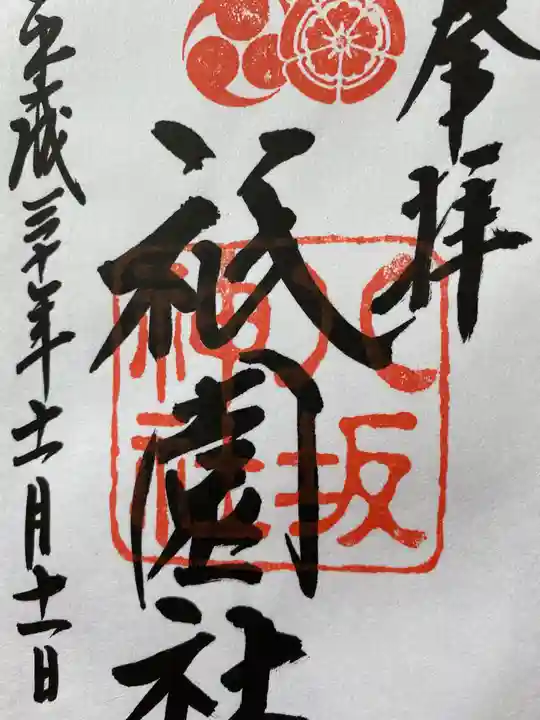 奉拝
祇園社
八坂神社
平成三十年十一月十一日